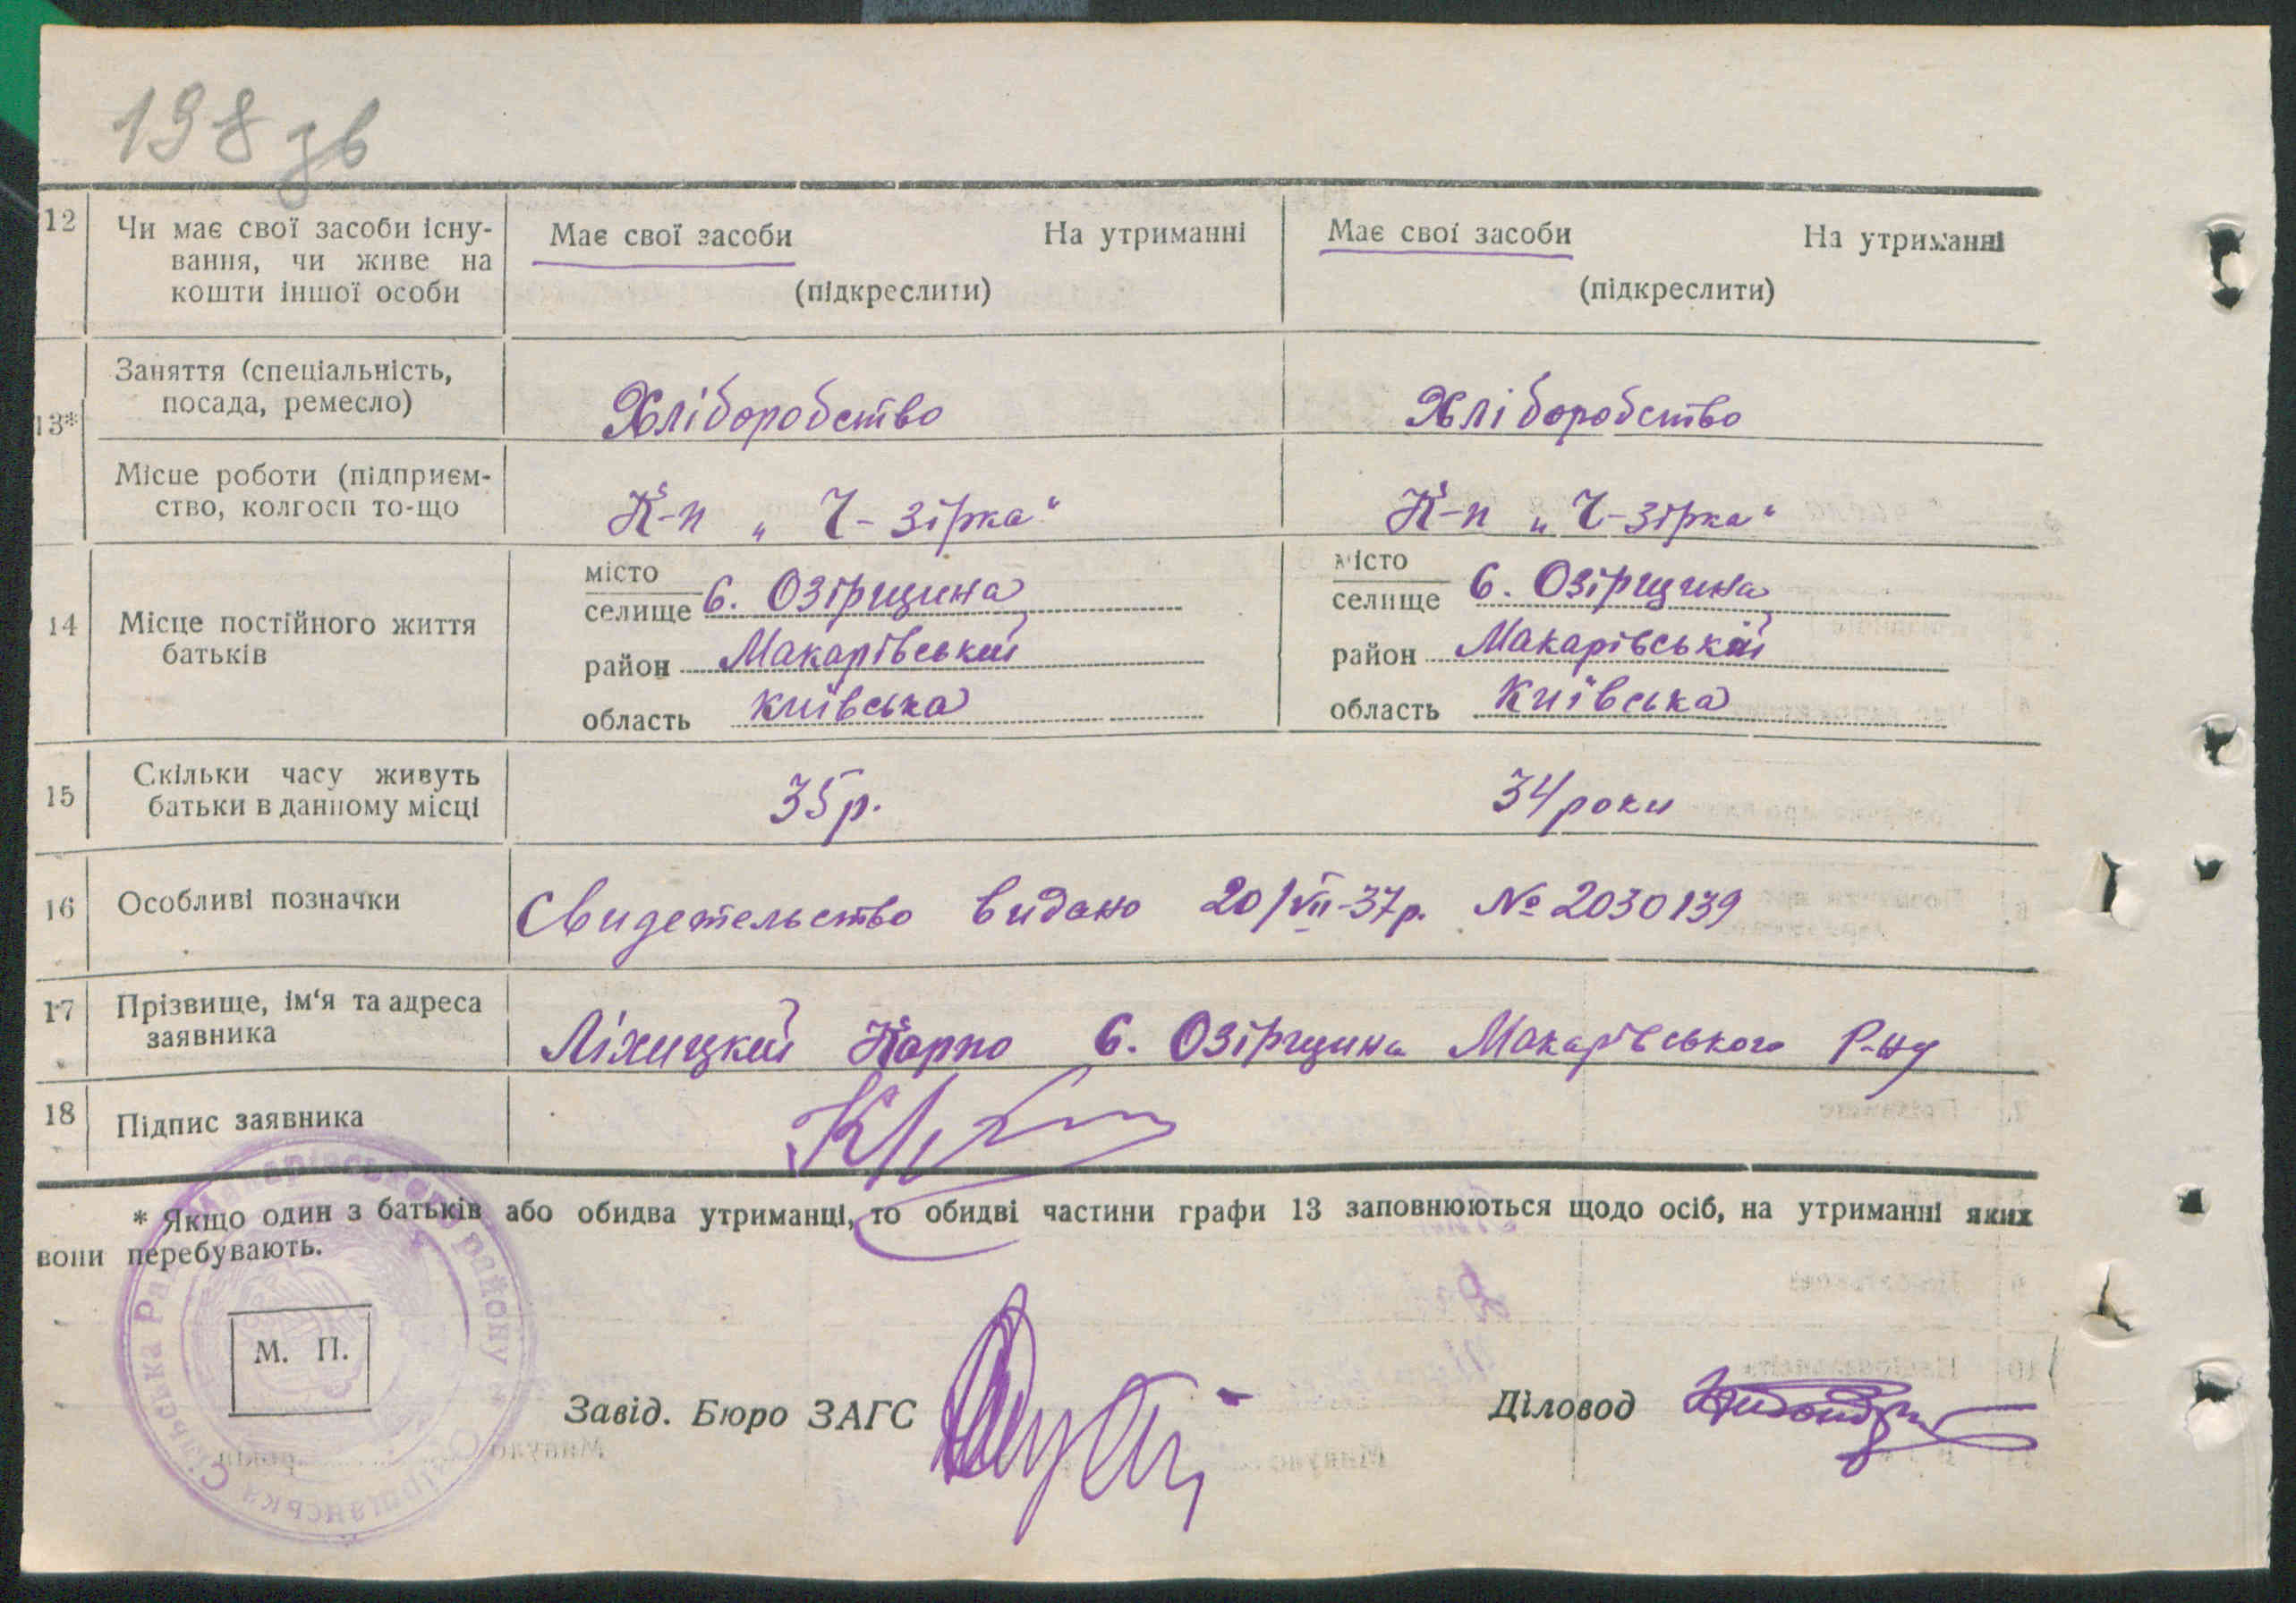 198 зв
12 Чи має свої засоби існу-
вання, чи живе на
кошти іншої особи
Має свої засоби На утриманні
(підкреслити)
Має свої засоби На утриманні
(підкреслити)
13*
Заняття (спеціальність,
посада, ремесло)
Хліборобство
Хліборобство
Місце роботи (підприєм-
ство, колгосп то-що
К-п „Ч-зірка"
К-п „Ч-зірка"
14 Місце постійного життя
батьків
місто
селище с. Озірщина
район Макарівський
область Київська
місто
селище с. Озірщина
район Макарівський
область Київська
15 Скільки часу живуть
батьки в данному місці
35 р.
34 роки
16 Особливі позначки
Свидетельство видано 20/VII-37р. № 2030139
17 Прізвище, ім'я та адреса
заявника
Ліхицкий Карпо с. Озірщина Макарівського Р-ну
18 Підпис заявника
* Якщо один з батьків або обидва утриманці, то обидві частини графи 13 заповнюються щодо осіб, на утриманні яких
вони перебувають.
М. П.
Завід. Бюро ЗАГС
Діловод